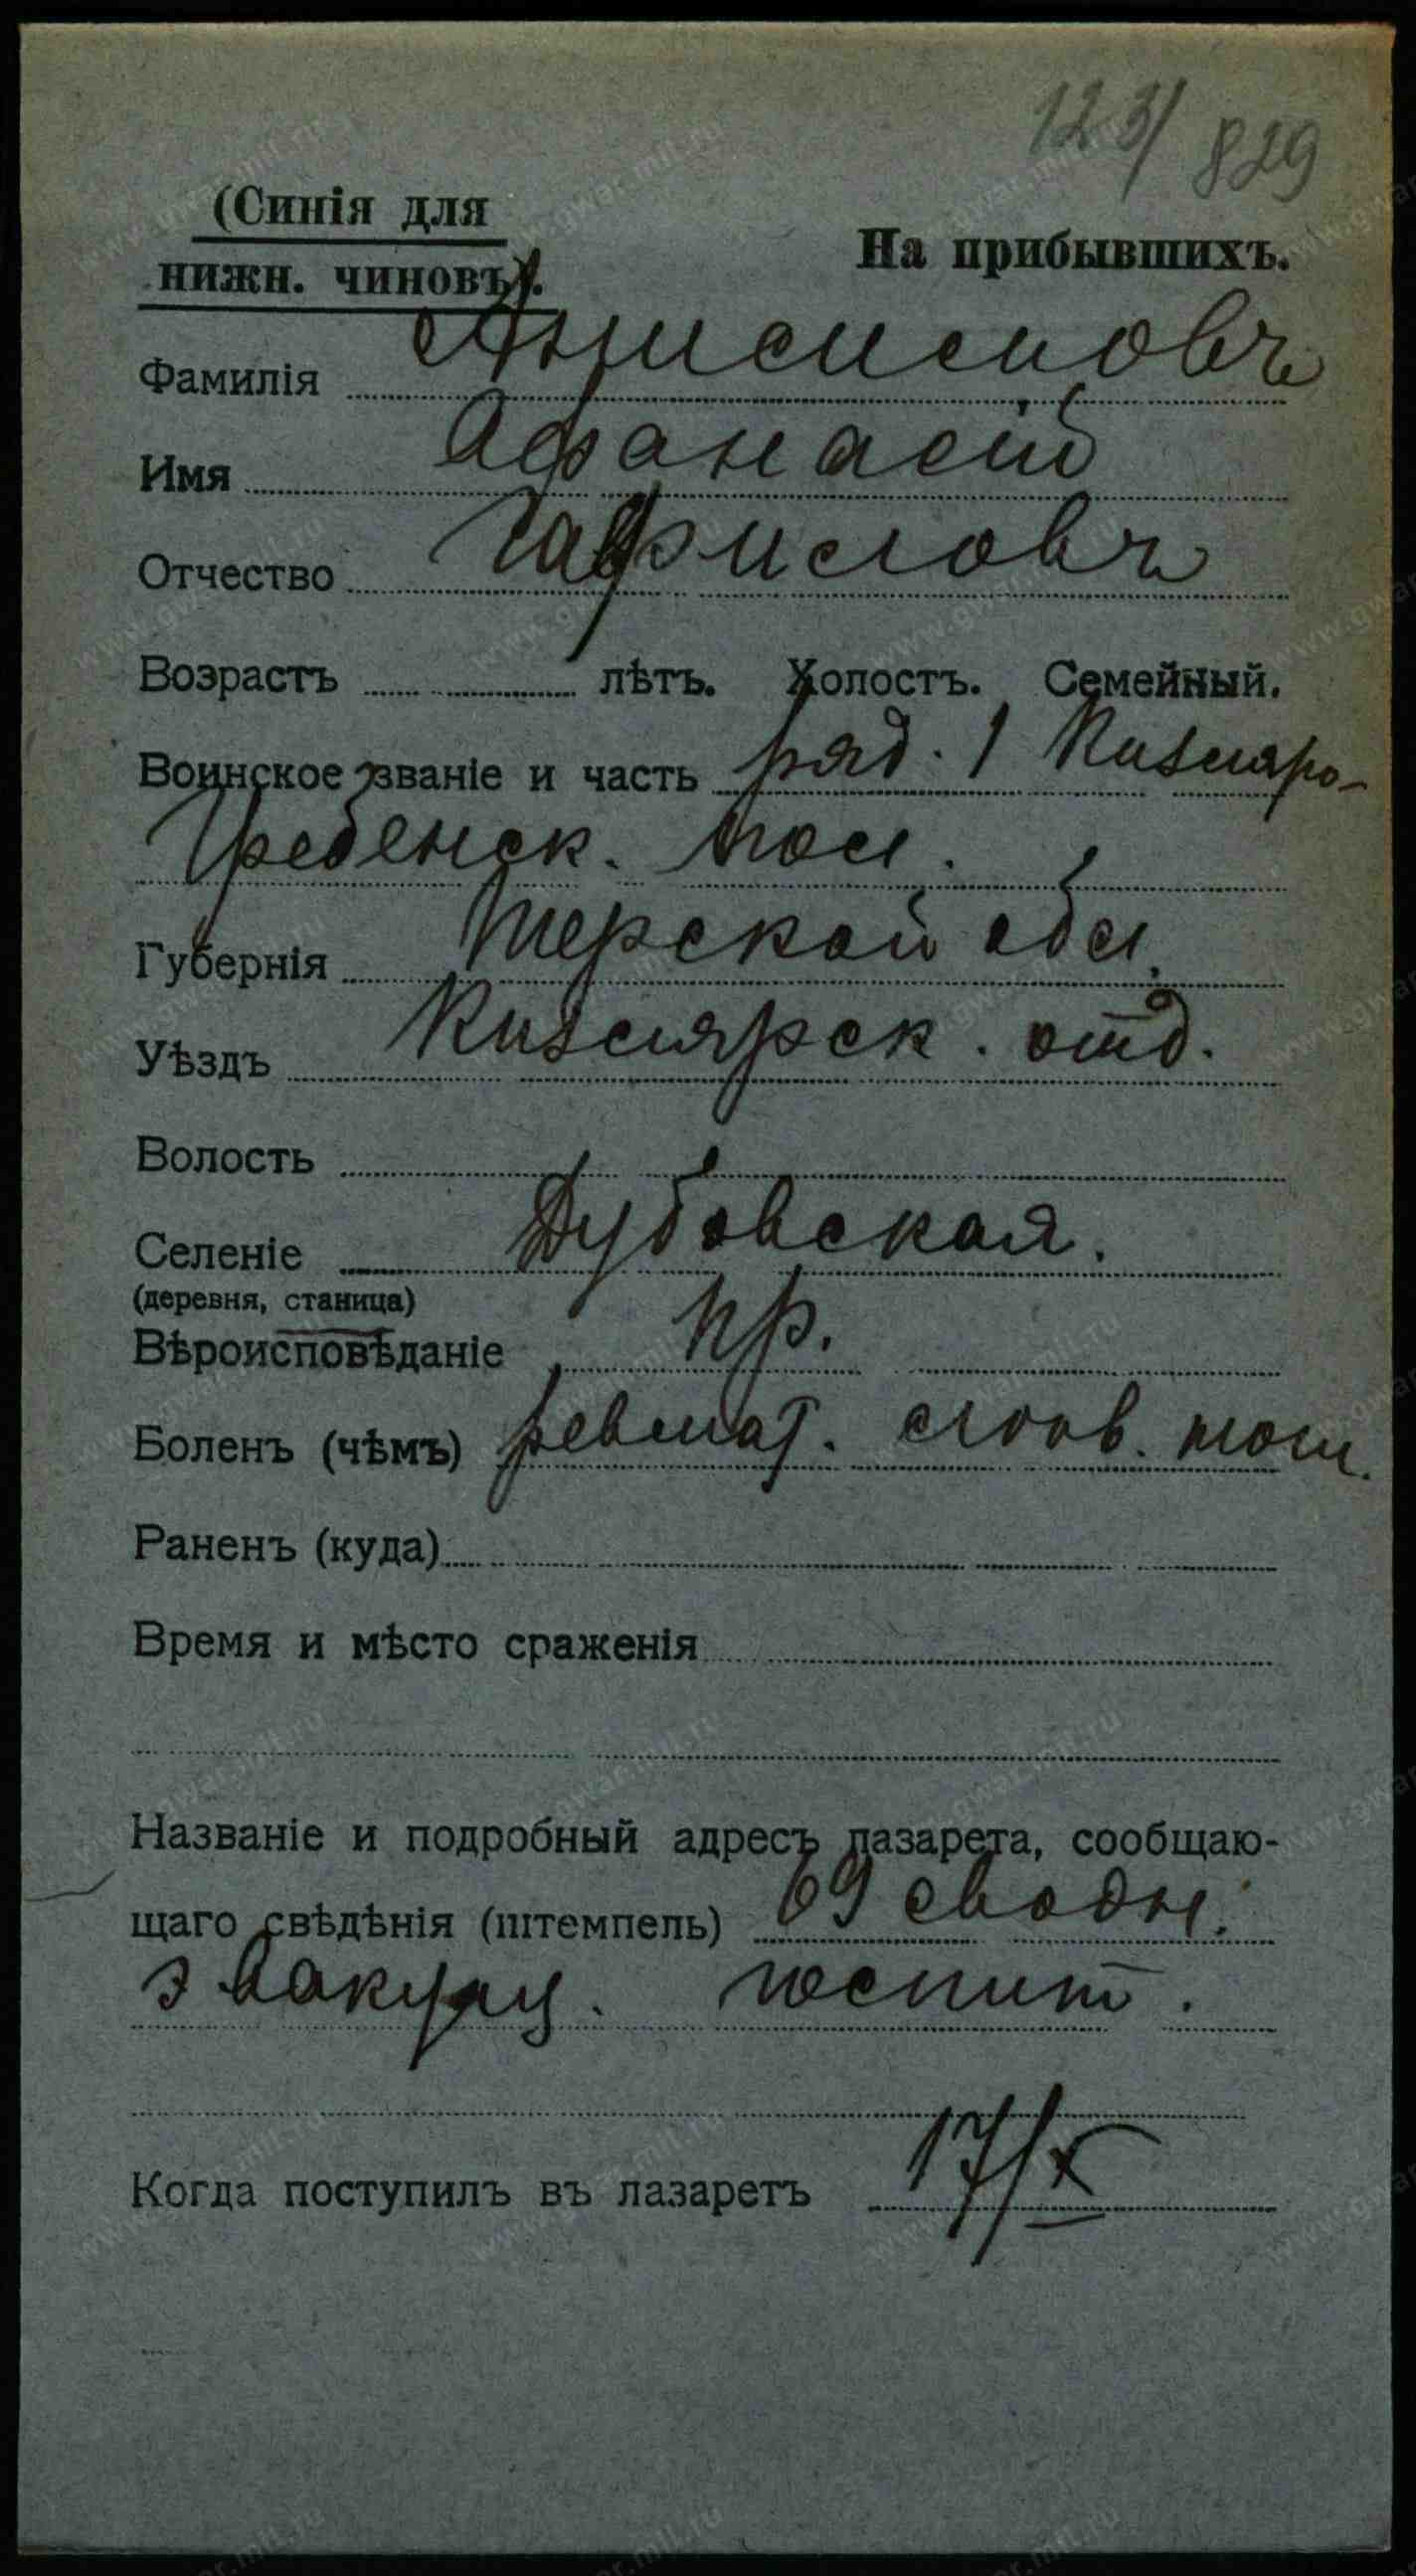 123/829
(Синія для
нижн. чиновъ).
На прибывшихъ.
Фамилія Анисимовъ
Имя Афанасій
Отчество Гавриловъ
Возрастъ лѣтъ. Холостъ. Семейный.
Воинское званіе и часть ряд. 1 Кизляро-
Гребенск. пол.
Губернія Терской обл.
Уѣздъ Кизлярск. отд.
Волость
Селеніе Дубовская.
(деревня, станица)
Вѣроисповѣданіе пр.
Боленъ (чѣмъ) ревмат.
Раненъ (куда)
Время и мѣсто сраженія
Названіе и подробный адресъ лазарета, сообщаю-
щаго свѣдѣнія (штемпель) 69 сводн.
эвакуац. госпит.
Когда поступилъ въ лазаретъ 17/X